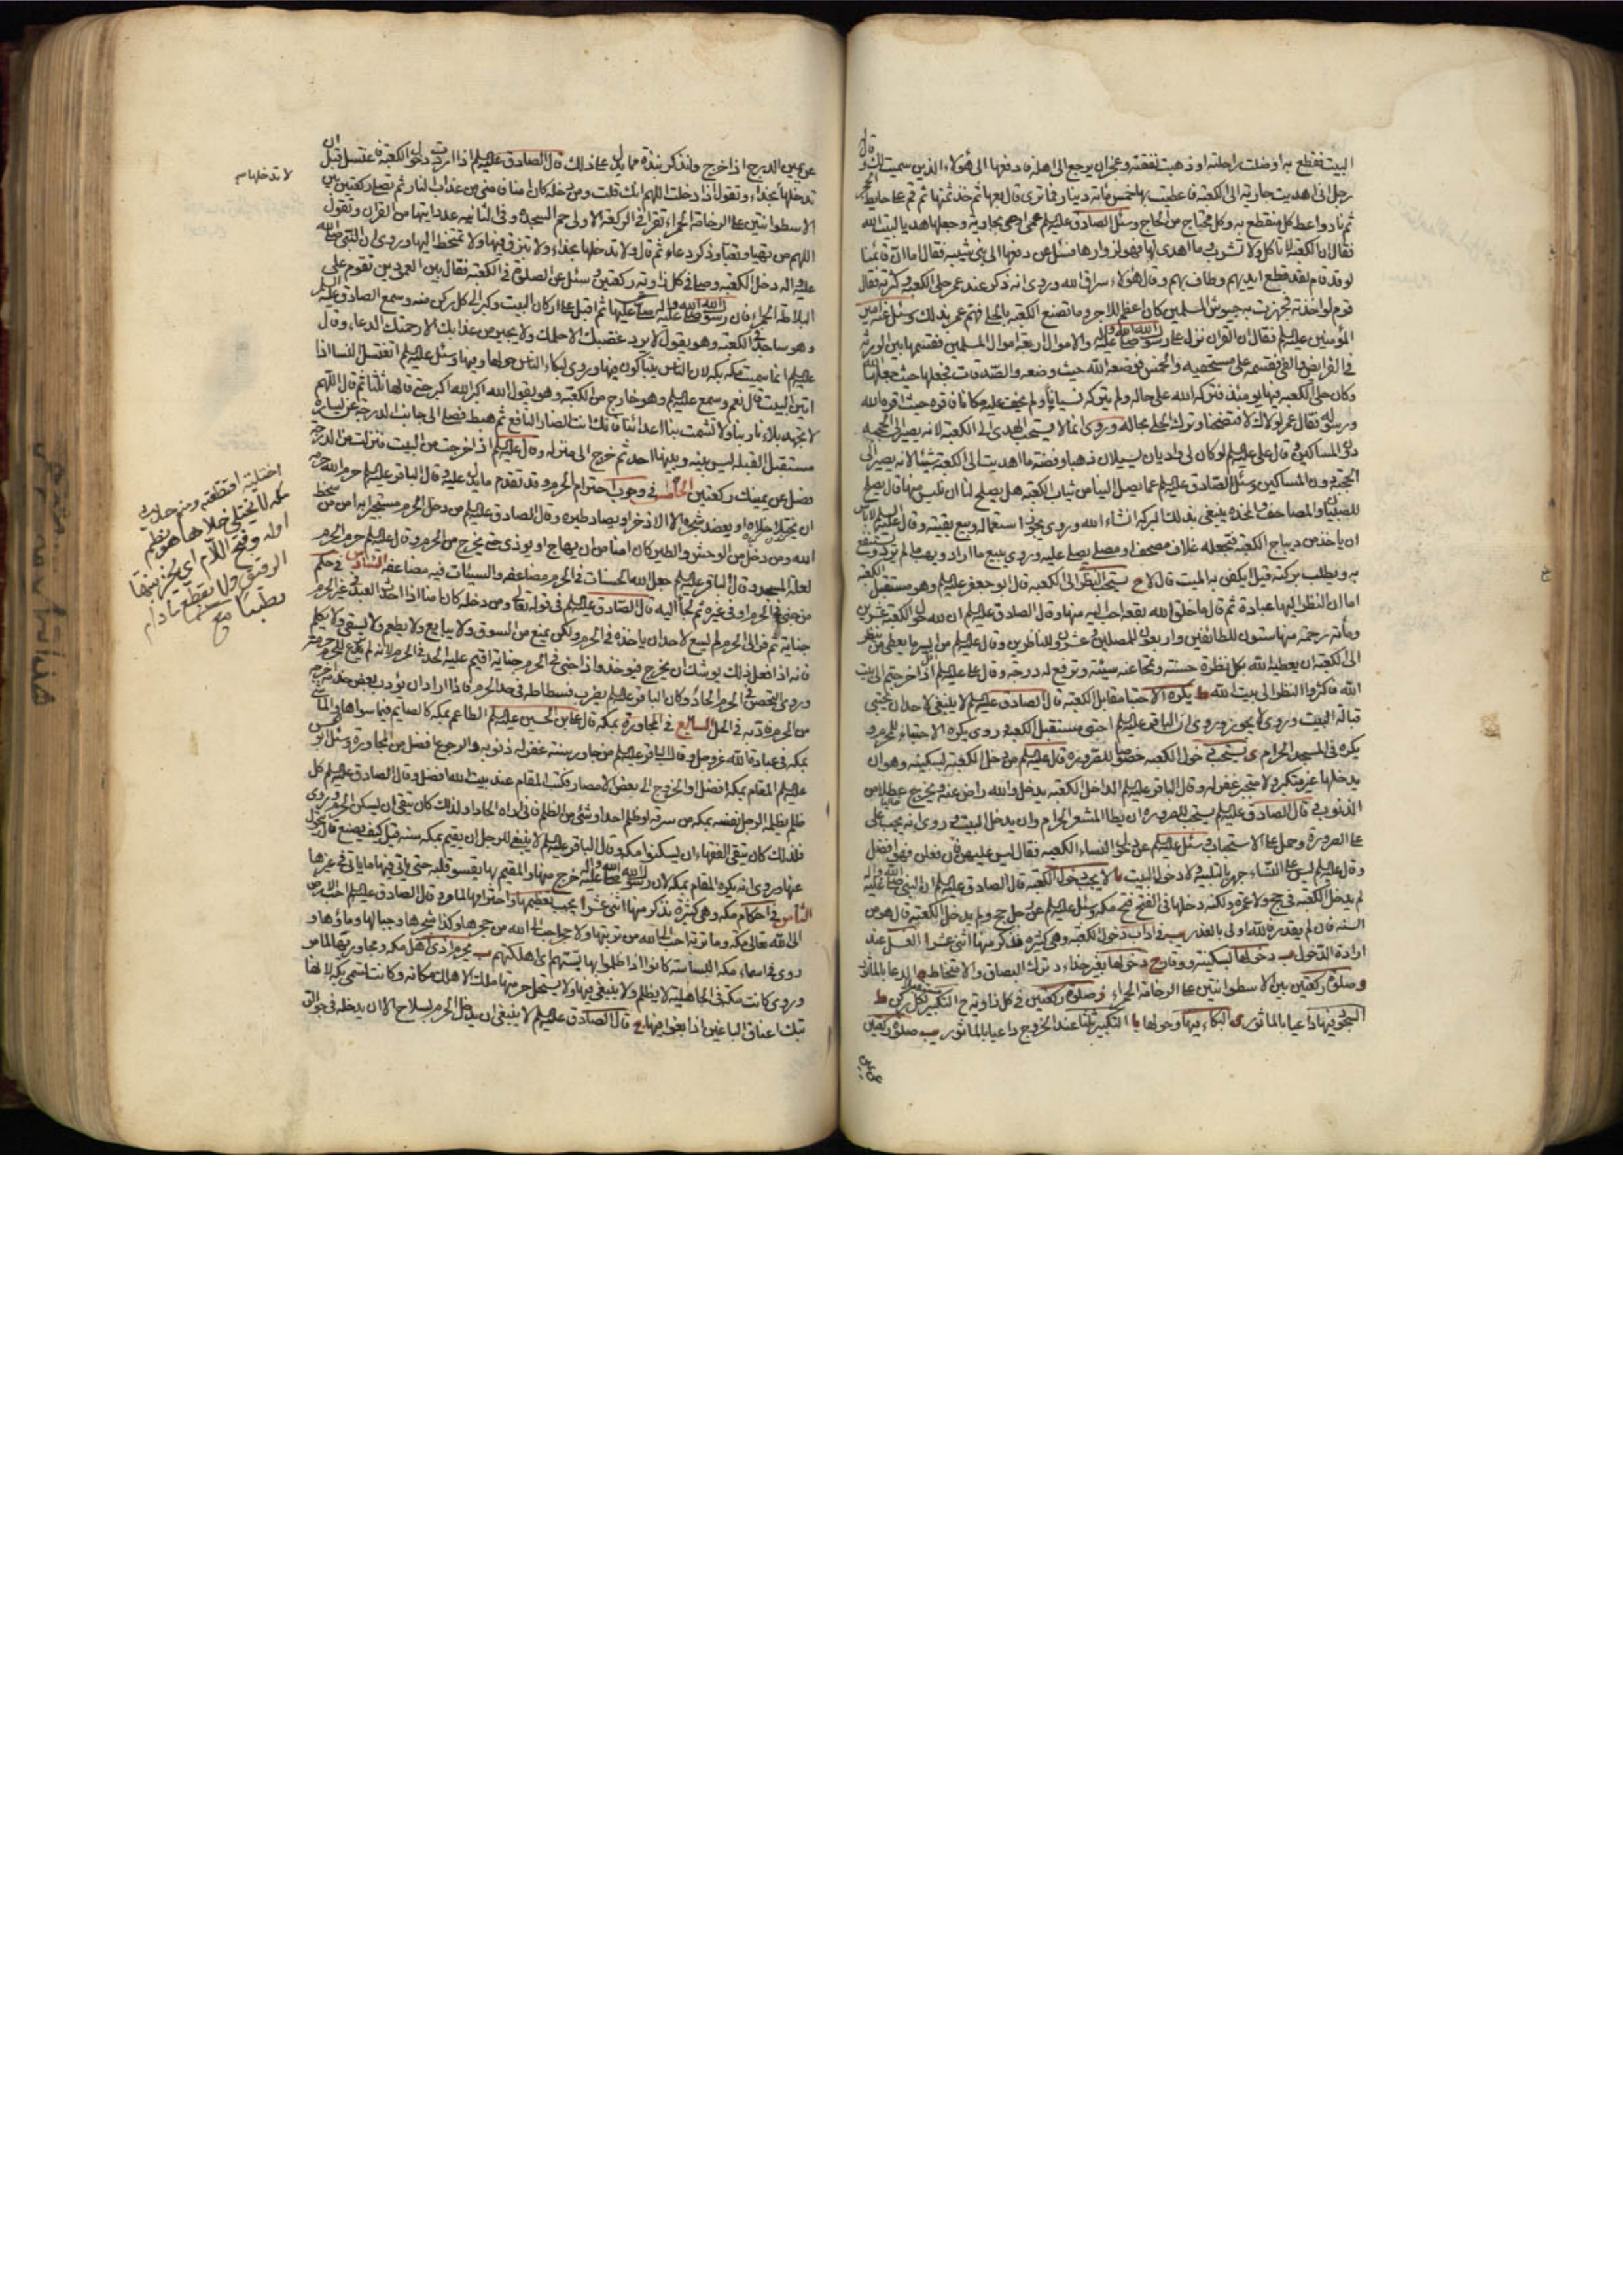 البيت فقطع به او ضلت راحلته او ذهبت نفقته وعجز ان يرجع الى اهله فادفعها الى هؤلاء الذين سميت لك وقال
رجل انى اهديت جارية الى الكعبة فاعطيت بها خمس مائة دينار فما ترى قال بعها ثم خذ ثمنها ثم قم على حايط الحجر
ثم ناد واعط كل منقطع به وكل محتاج من الحاج وسئل الصادق عليه السلم عمن اوصى بجاريته وجعلها هديا لبيت الله
فقال ان الكعبة لا تاكل ولا تشرب وما اهدى لها فهو لزوارها وسئل عن دفعها الى بنى شيبة فقال اما ان قائمنا
لو قد قام لقد قطع ايديهم وطاف بهم وقال هؤلاء سراق الله وروى انه ذكر عند عمر حلى الكعبة وكثرته فقال
قوم لو اخذته فجهزت به جيوش المسلمين كان اعظم للاجر وما تصنع الكعبة بالحلى فهم عمر بذلك وسئل عنه امير
المؤمنين عليه السلم فقال ان القران نزل على رسول الله صلى الله عليه واله والاموال اربعة اموال المسلمين فقسمها بين الورثة
فى الفرايض والفئ فقسمه على مستحقيه والخمس فوضعه الله حيث وضعه والصدقات فجعلها الله حيث جعلها
وكان حلى الكعبة فيها يومئذ فتركه الله على حاله ولم يتركه نسيانا ولم يخف عليه مكانا فاقره حيث اقره الله
ورسوله فقال عمر لولاك لافتضحنا وترك الحلى بحاله وروى انما لا يستحب الهدى الى الكعبة لانه يصير الى الحجبة
دون المساكين وقال على عليه السلم لو كان لى واديان يسيلان ذهبا وفضة ما اهديت الى الكعبة شيئا لانه يصير الى
الحجبة دون المساكين وسئل الصادق عليه السلم عما يصل الينا من ثياب الكعبة هل يصلح لنا ان نلبس منها قال يصلح
للصبيان والمصاحف والمخدة يبتغى بذلك البركة انشاء الله وروى يجوز استعماله وبيع بقيته وقال عليه السلم لا باس
ان ياخذ من ديباج الكعبة فيجعله غلاف مصحف او مصلى يصلى عليه وروى يبيع ما اراد ويهب ما لم يرد ويستنفع
به ويطلب بركته قيل ايكفن به الميت قال لا ح يستحب النظر الى الكعبة قال ابو جعفر عليه السلم وهو مستقبل الكعبة
اما ان النظر اليها عبادة ثم قال ما خلق الله بقعة احب اليه منها وقال الصادق عليه السلم ان لله حول الكعبة عشرين
ومأة رحمة منها ستون للطائفين واربعون للمصلين وعشرون للناظرين وقال عليه السلم من ايسر ما يعطى من ينظر
الى الكعبة ان يعطيه الله بكل نظرة حسنة وتمحا عنه سيئته وترفع له درجة وقال على عليه السلم اذا خرجتم الى بيت
الله فاكثروا النظر الى بيت الله ط يكره الاحتبا مقابل الكعبة قال الصادق عليه السلم لا ينبغى لاحد ان يحتبى
قبالة البيت وروى لا يجوز وروى ان الباقر عليه السلم احتبى مستقبل الكعبة وروى يكره الاحتباء للمحرم و
يكره فى المسجد الحرام ى يستحب دخول الكعبة خصوصا للصرورة قال عليه السلم من دخل الكعبة بسكينه وهو ان
يدخلها غير متكبر ولا متجبر غفر له وقال الباقر عليه السلم الداخل الكعبة يدخل والله راض عنه ويخرج عطلا من
الذنوب وقال الصادق عليه السلم يستحب للصرورة ان يطا المشعر الحرام وان يدخل البيت وروى انه يجب على
على الصرورة وحمل على الاستحباب وسئل عليه السلم عن دخول النساء الكعبة فقال ليس عليهن فان فعلن فهو افضل
وقال عليه السلم ليس على النساء جهر بالتلبية ولا دخول البيت يا لا يجب دخول الكعبة قال الصادق عليه السلم ان النبى صلى الله عليه واله
لم يدخل الكعبة فى حج ولا عمرة ولكنه دخلها فى الفتح فتح مكه وسئل عليه السلم عن رجل حج ولم يدخل الكعبة قال هو من
السنة فان لم يقدر فالله اولى بالعذر يب فى اداب دخول الكعبة وهى كثيرة فذكر منها اثنى عشر ا الغسل عند
ارادة الدخول ب دخولها بسكينة ووقار ج دخولها بغير حذاء د ترك البصاق والامتخاط ه الدعا بالماثور
و صلوة ركعتين بين الاسطوانتين على الرخامة الحمراء ز صلوة ركعتين فى كل زاوية ح التكبير لكل ركن ط
السجود فيها داعيا بالماثور ى البكاء فيها وحولها يا التكبير ثلثا عند الخروج داعيا بالماثور يب صلوة ركعتين
عن يمين
عن يمين الدرج اذا خرج ولنذكر نبذة مما يدل على ذلك قال الصادق عليه السلم اذا اردت دخول الكعبة فاغتسل قبل ان
تدخلها بحذاء وتقول اذا دخلت اللهم انك قلت ومن دخله كان امنا فامنى من عذاب النار ثم تصلى ركعتين بين
الاسطوانتين على الرخامة الحمراء تقرا فى الركعة الاولى حم السجدة وفى الثانيه عدد اياتها من القران وتقول
اللهم من تهيا وتعبا وذكر دعاء ثم قال ولا تدخلها بحذاء ولا تبزق فيها ولا تمتخط اليها وروى ان النبى صلى الله
عليه واله دخل الكعبة وصلى فى كل زاوية ركعتين وسئل عن الصلوة فى الكعبة فقال بين العمودين تقوم على
البلاطة الحمراء فان رسول الله صلى الله عليه واله صلى عليها ثم اقبل على اركان البيت وكبر الى كل ركن منه وسمع الصادق عليه السلم
وهو ساجد فى الكعبة وهو يقول لا يرد غضبك الا حلمك ولا يجير من عذابك الا رحمتك الدعاء وقال
عليه السلم انما سميت مكه بكه لان الناس يتباكون فيها وروى لبكاء الناس حولها وفيها وسئل عليه السلم اتغتسل النسا اذا
اتين البيت قال نعم وسمع عليه السلم وهو خارج من الكعبة وهو يقول الله اكبر الله اكبر حتى قالها ثلثا ثم قال اللهم
لا تجهد بلاءنا ربنا ولا تشمت بنا اعداءنا فانك انت الضار النافع ثم هبط فصلى الى جانب الدرجة عن يساره
مستقبل القبلة ليس بينه وبينها احد ثم خرج الى منزله وقال عليه السلم اذا خرجت من البيت فنزلت من الدرجة
فصل عن يمينك ركعتين الخامس فى وجوب احترام الحرم وقد تقدم ما يدل عليه قال الباقر عليه السلم حرم الله حرمه
ان يختلا خلاه او يعضد شجره الا الاذخر او يصاد طيره وقال الصادق عليه السلم من دخل الحرم مستجيرا به امن من سخط
الله ومن دخل من الوحش والطير كان امنا من ان يهاج او يوذى حتى يخرج من الحرم وقال عليه السلم حرم الحرم
لعلة المسجد وقال الباقر عليه السلم جعل الله الحسنات فى الحرم مضاعفه والسيئات فيه مضاعفه السادس فى حكم
من جنى فى الحرم او فى غيره ثم لجأ اليه قال الصادق عليه السلم فى قوله تعالى ومن دخله كان امنا اذا احدث العبد فى غير الحرم
جناية ثم فر الى الحرم لم يسع لاحد ان ياخذه فى الحرم ولكن يمنع من السوق ولا يبايع ولا يطعم ولا يسقى ولا يكلم
فانه اذا فعل ذلك يوشك ان يخرج فيوخذ واذا جنى فى الحرم جناية اقيم عليه الحد فى الحرم لانه لم يدع للحرم حرمته
وروى القصاص فى الحرم الحاد وكان الباقر عليه السلم يضرب فسطاطه فى حد الحرم فاذا اراد ان يؤدب بعض خدمه اخرجه
من الحرم فادبه فى الحل السابع فى المجاورة بمكه قال على بن الحسين عليه السلم الطاعم بمكه كالصايم فيما سواها والماشى
بمكه فى عبادة الله عز وجل وقال الباقر عليه السلم من جاور سنة غفر له ذنوبه والرجوع افضل من المجاورة وسئل ابو الحسن
عليه السلم المقام بمكه افضل او الخروج الى بعض الامصار فكتب المقام عند بيت الله افضل وقال الصادق عليه السلم كل
ظلم يظلمه الرجل نفسه بمكه من سرقه او ظلم احد او شئ من الظلم فانى اراه الحادا ولذلك كان يتقى ان يسكن الحرم وروى
فلذلك كان يتقى الفقهاء ان يسكنوا مكه وقال الباقر عليه السلم لا ينبغى للرجل ان يقيم بمكه سنة قيل كيف يصنع قال يتحول
عنها وروى انه يكره المقام بمكه لان رسول الله صلى الله عليه واله خرج منها والمقيم بها يقسو قلبه حتى ياتى فيها ما ياتى فى غيرها
الثامن فى احكام مكه وهى كثيرة نذكر منها اثنى عشر ا يجب تعظيمها واحترامها لما مر وقال الصادق عليه السلم احب الارض
الى الله تعالى مكه وما تربة احب الى الله من تربتها ولا حجر احب الى الله من حجرها وكذا شجرها وجبالها وماؤها و
روى فى اسماء مكه البساسة كانوا اذا ظلموا بها بستهم اى اهلكتهم ب يحرم اذى اهل مكه ومجاوريها لما مر
وروى كانت مكة فى الجاهلية لا يظلم ولا يبغى فيها ولا يستحل حرمتها ملك الا هلك مكانه وكانت تسمى بكه لانها
تبك اعناق الباغين اذا بغوا فيها ج قال الصادق عليه السلم لا ينبغى ان يدخل الحرم بسلاح الا ان يدخله فى جوالق
لا تدخلها
اختليته اذ قطعته ومنه حديث
مكه لا يختلى خلاها هو بضم
اوله وفتح اللام اى لا يجز نبتها
الرقيق ولا يقطع مادام
رطبا مج